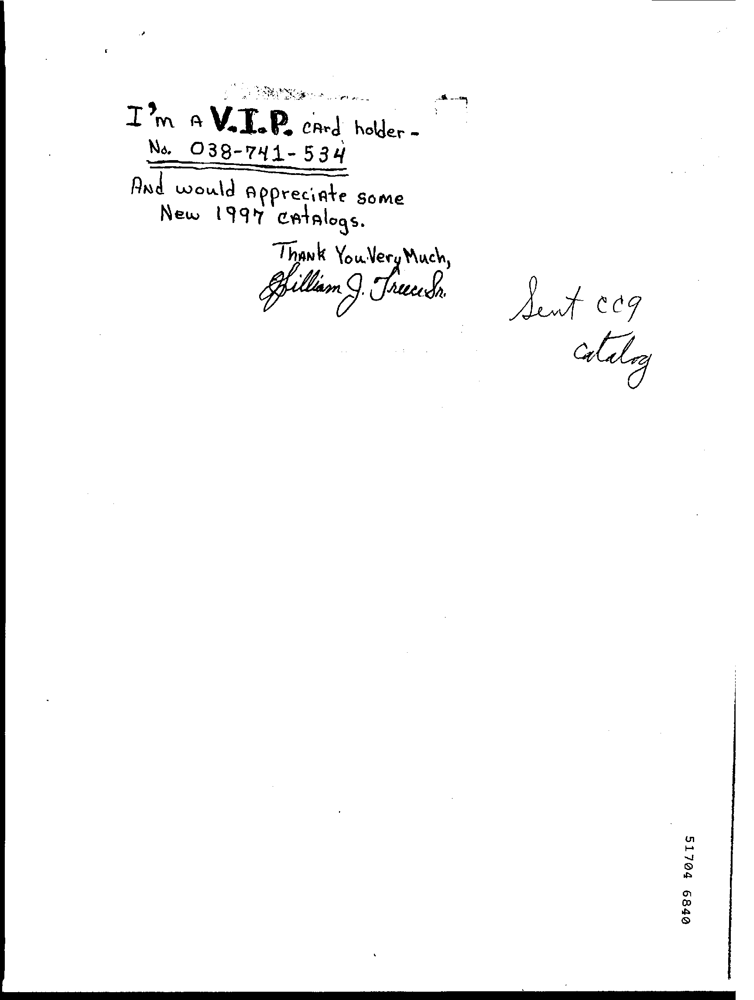 I'm A V.I.P. CArd holder -
No. 038-741-534
ANd would AppreciAte some
New 1997 CAtAlogs.
ThANk You Very Much,
William J. Treece Sr.
Sent CC9
catalog
51704 6840